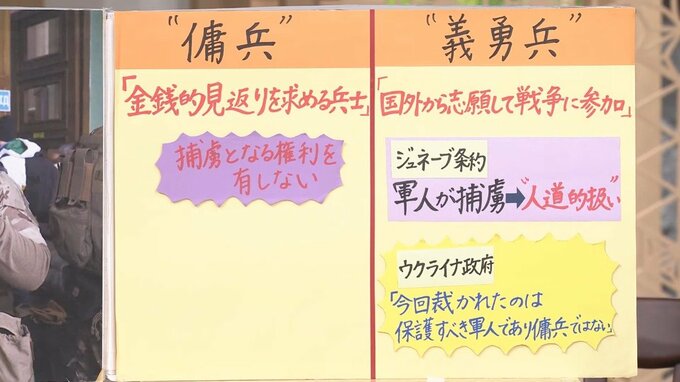 “傭兵”
「金銭的見返りを求める兵士」
捕虜となる権利を
有しない
“義勇兵”
「国外から志願して戦争に参加」
ジュネーブ条約
軍人が捕虜➡“人道的扱い”
ウクライナ政府
「今回裁かれたのは
保護すべき軍人であり傭兵ではない」